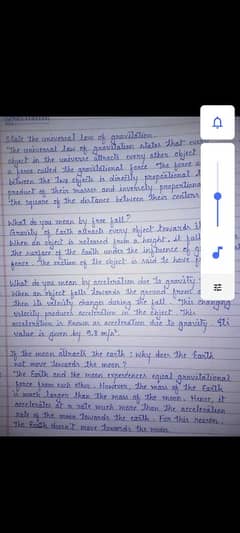 State the universal law of gravitation.
The universal law of gravitation states that
object in the universe attracts every other object
a force called the gravitational force. The force
between the two objects is directly
product of their masses and inversely
the square of the distance between their centers
What do you mean by free fall?
Gravity of Earth attracts every object towards
When an object is released from a height, it
the surface of the Earth under the influence of
force. The motion of the object is said to have
What do you mean by acceleration due to gravity
When an object falls towards the ground from a
then its velocity changes during the fall. This changing
velocity produces acceleration in the object. This
acceleration is known as acceleration due to gravity. Its
value is given by 9.8 m/s².
If the moon attracts the earth; why does the Earth
not move towards the moon?
The Earth and the moon experiences equal gravitational
force from each other. However, the mass of the Earth
is much larger than the mass of the moon. Hence, it
accelerates at a rate much more than the acceleration
rate of the moon towards the earth. For this reason,
The Earth doesn't move towards the moon